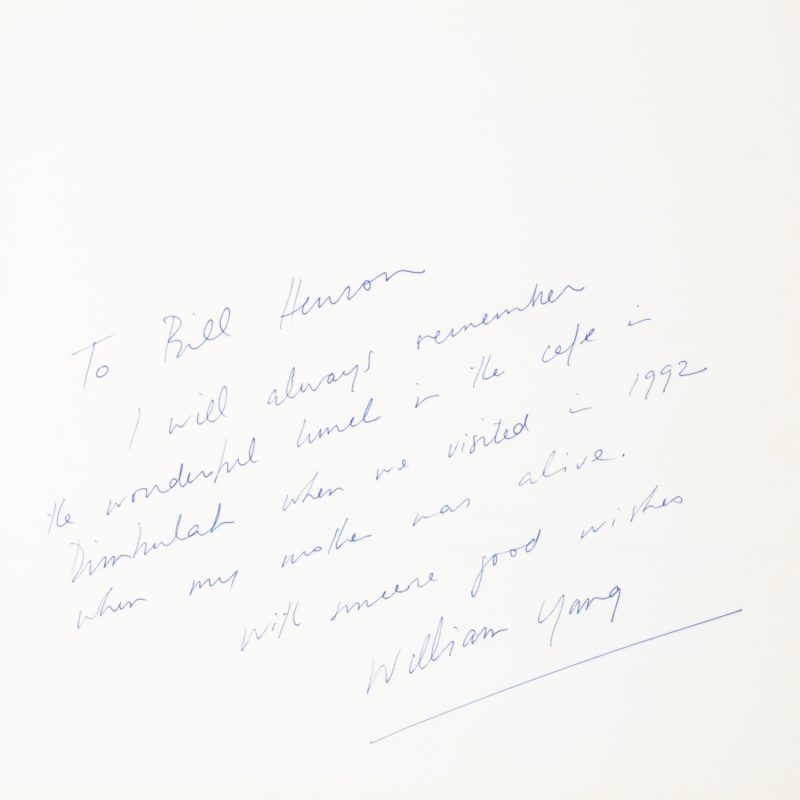 To Bill Henson
I will always remember
the wonderful lunch in the cafe in
Dimbulah when we visited in 1992
when my mother was alive.
with sincere good wishes
William Yang